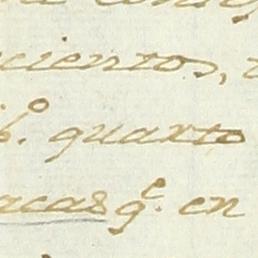 cientos,
b.º quarto
acas q.e en